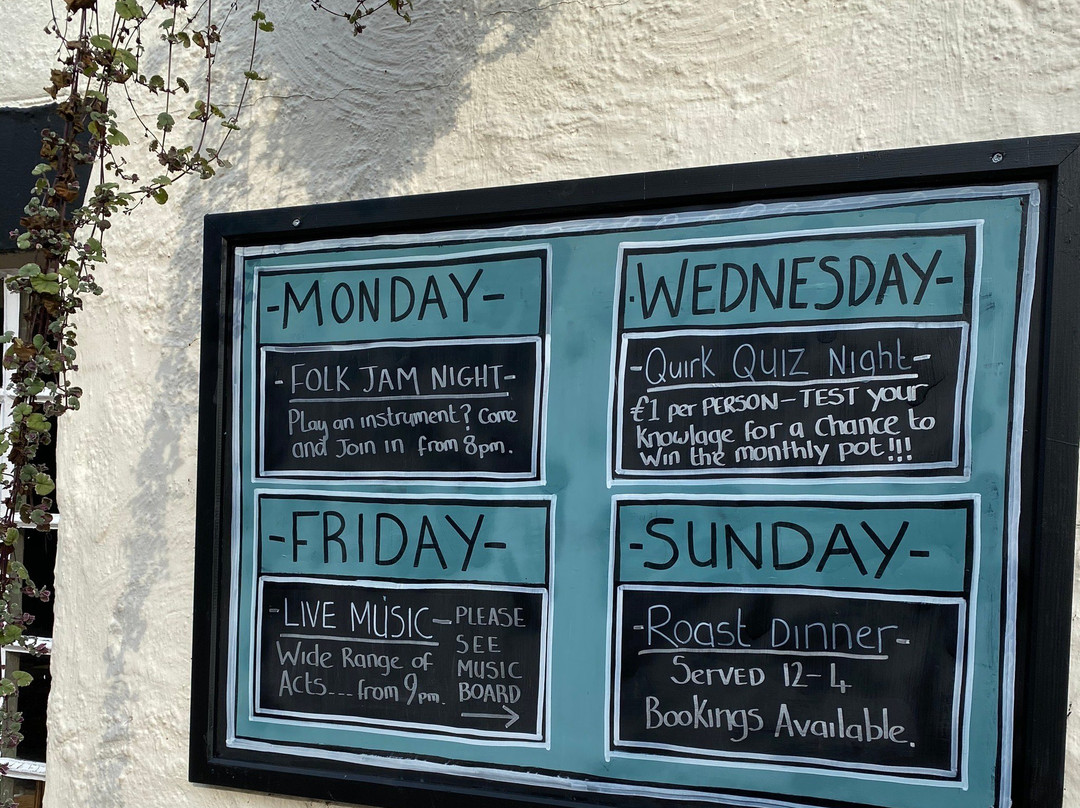 -MONDAY-
-FOLK JAM NIGHT-
Play an instrument? Come
and Join in from 8pm.
-WEDNESDAY-
-Quirk QUIZ Night-
£1 per PERSON - TEST your
Knowlage for a Chance to
Win the monthly pot!!!
-FRIDAY-
-LIVE MUSIC-
Wide Range of
Acts... from 9pm.
PLEASE
SEE
MUSIC
BOARD
-SUNDAY-
-Roast Dinner-
Served 12-4
Bookings Available.